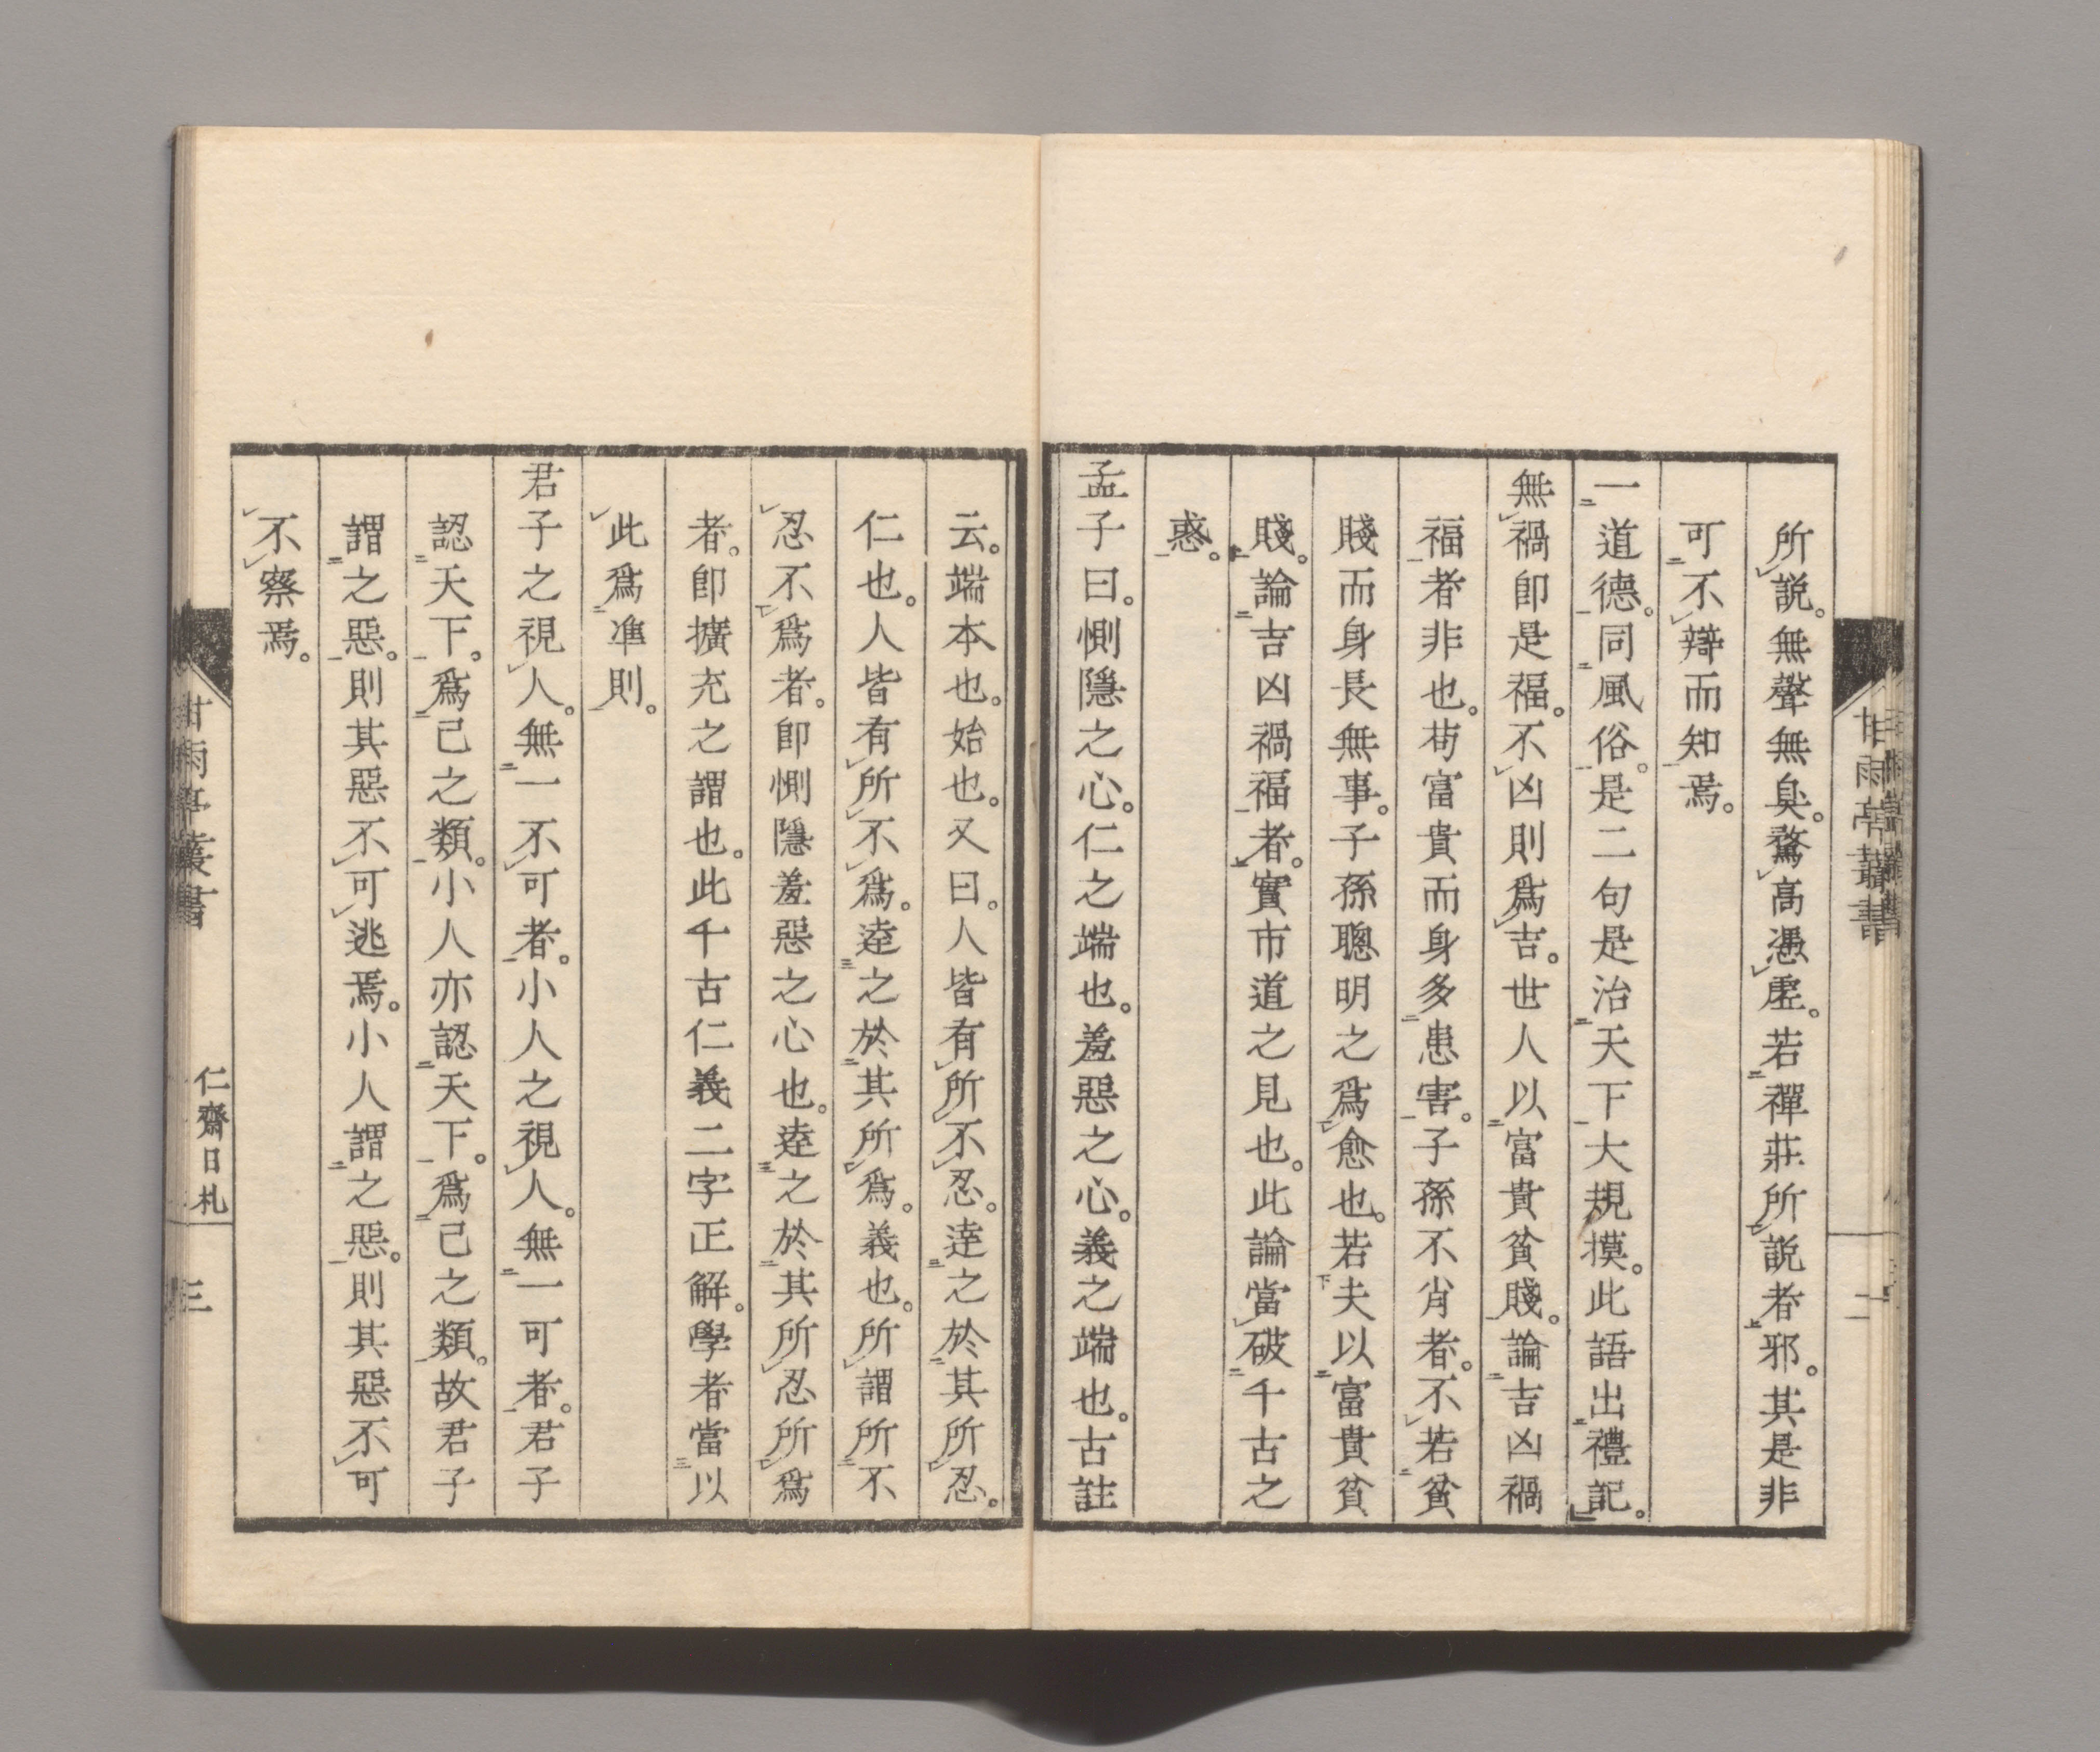 甘雨亭叢書
二
所説。無聲無臭。騖高憑虛。若禪莊所説者邪。其是非
可不辯而知焉。
一道德。同風俗。是二句是治天下大規摸。此語出禮記。
無禍卽是福。不凶則爲吉。世人以富貴貧賤。論吉凶禍
福者非也。苟富貴而身多患害。子孫不肖者。不若貧
賤而身長無事。子孫聰明之爲愈也。若夫以富貴貧
賤。論吉凶禍福者。實市道之見也。此論當破千古之
惑。
孟子曰。惻隱之心。仁之端也。羞惡之心。義之端也。古註
云。端本也。始也。又曰。人皆有所不忍。逹之於其所忍。
仁也。人皆有所不爲。逹之於其所爲。義也。所謂所不
忍不爲者。卽惻隱羞惡之心也。逹之於其所忍所爲
者。卽擴充之謂也。此千古仁義二字正解。學者當以
此爲準則。
君子之視人。無一不可者。小人之視人。無一可者。君子
認天下。爲己之類。小人亦認天下。爲己之類。故君子
謂之惡。則其惡不可逃焉。小人謂之惡。則其惡不可
不察焉。
甘雨亭叢書
仁齋日札
三